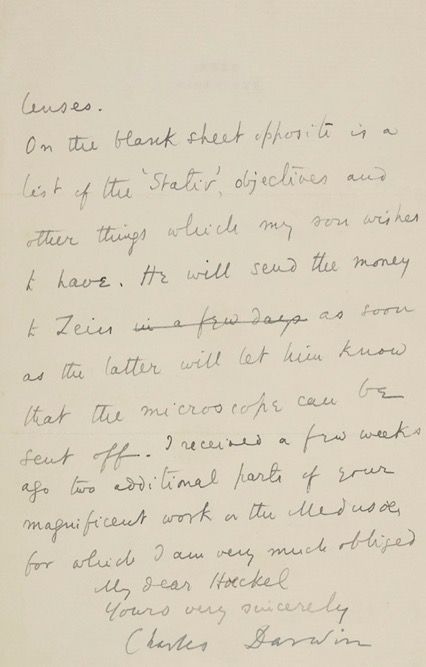 lenses.
On the blank sheet opposite is a
list of the 'Stativ', objectives and
other things which my son wishes
to have. He will send the money
to Zeiss in a few days as soon
as the latter will let him know
that the microscope can be
sent off. I received a few weeks
ago two additional parts of your
magnificent work on the Medusæ
for which I am very much obliged
My dear Häckel
Yours very sincerely
Charles Darwin